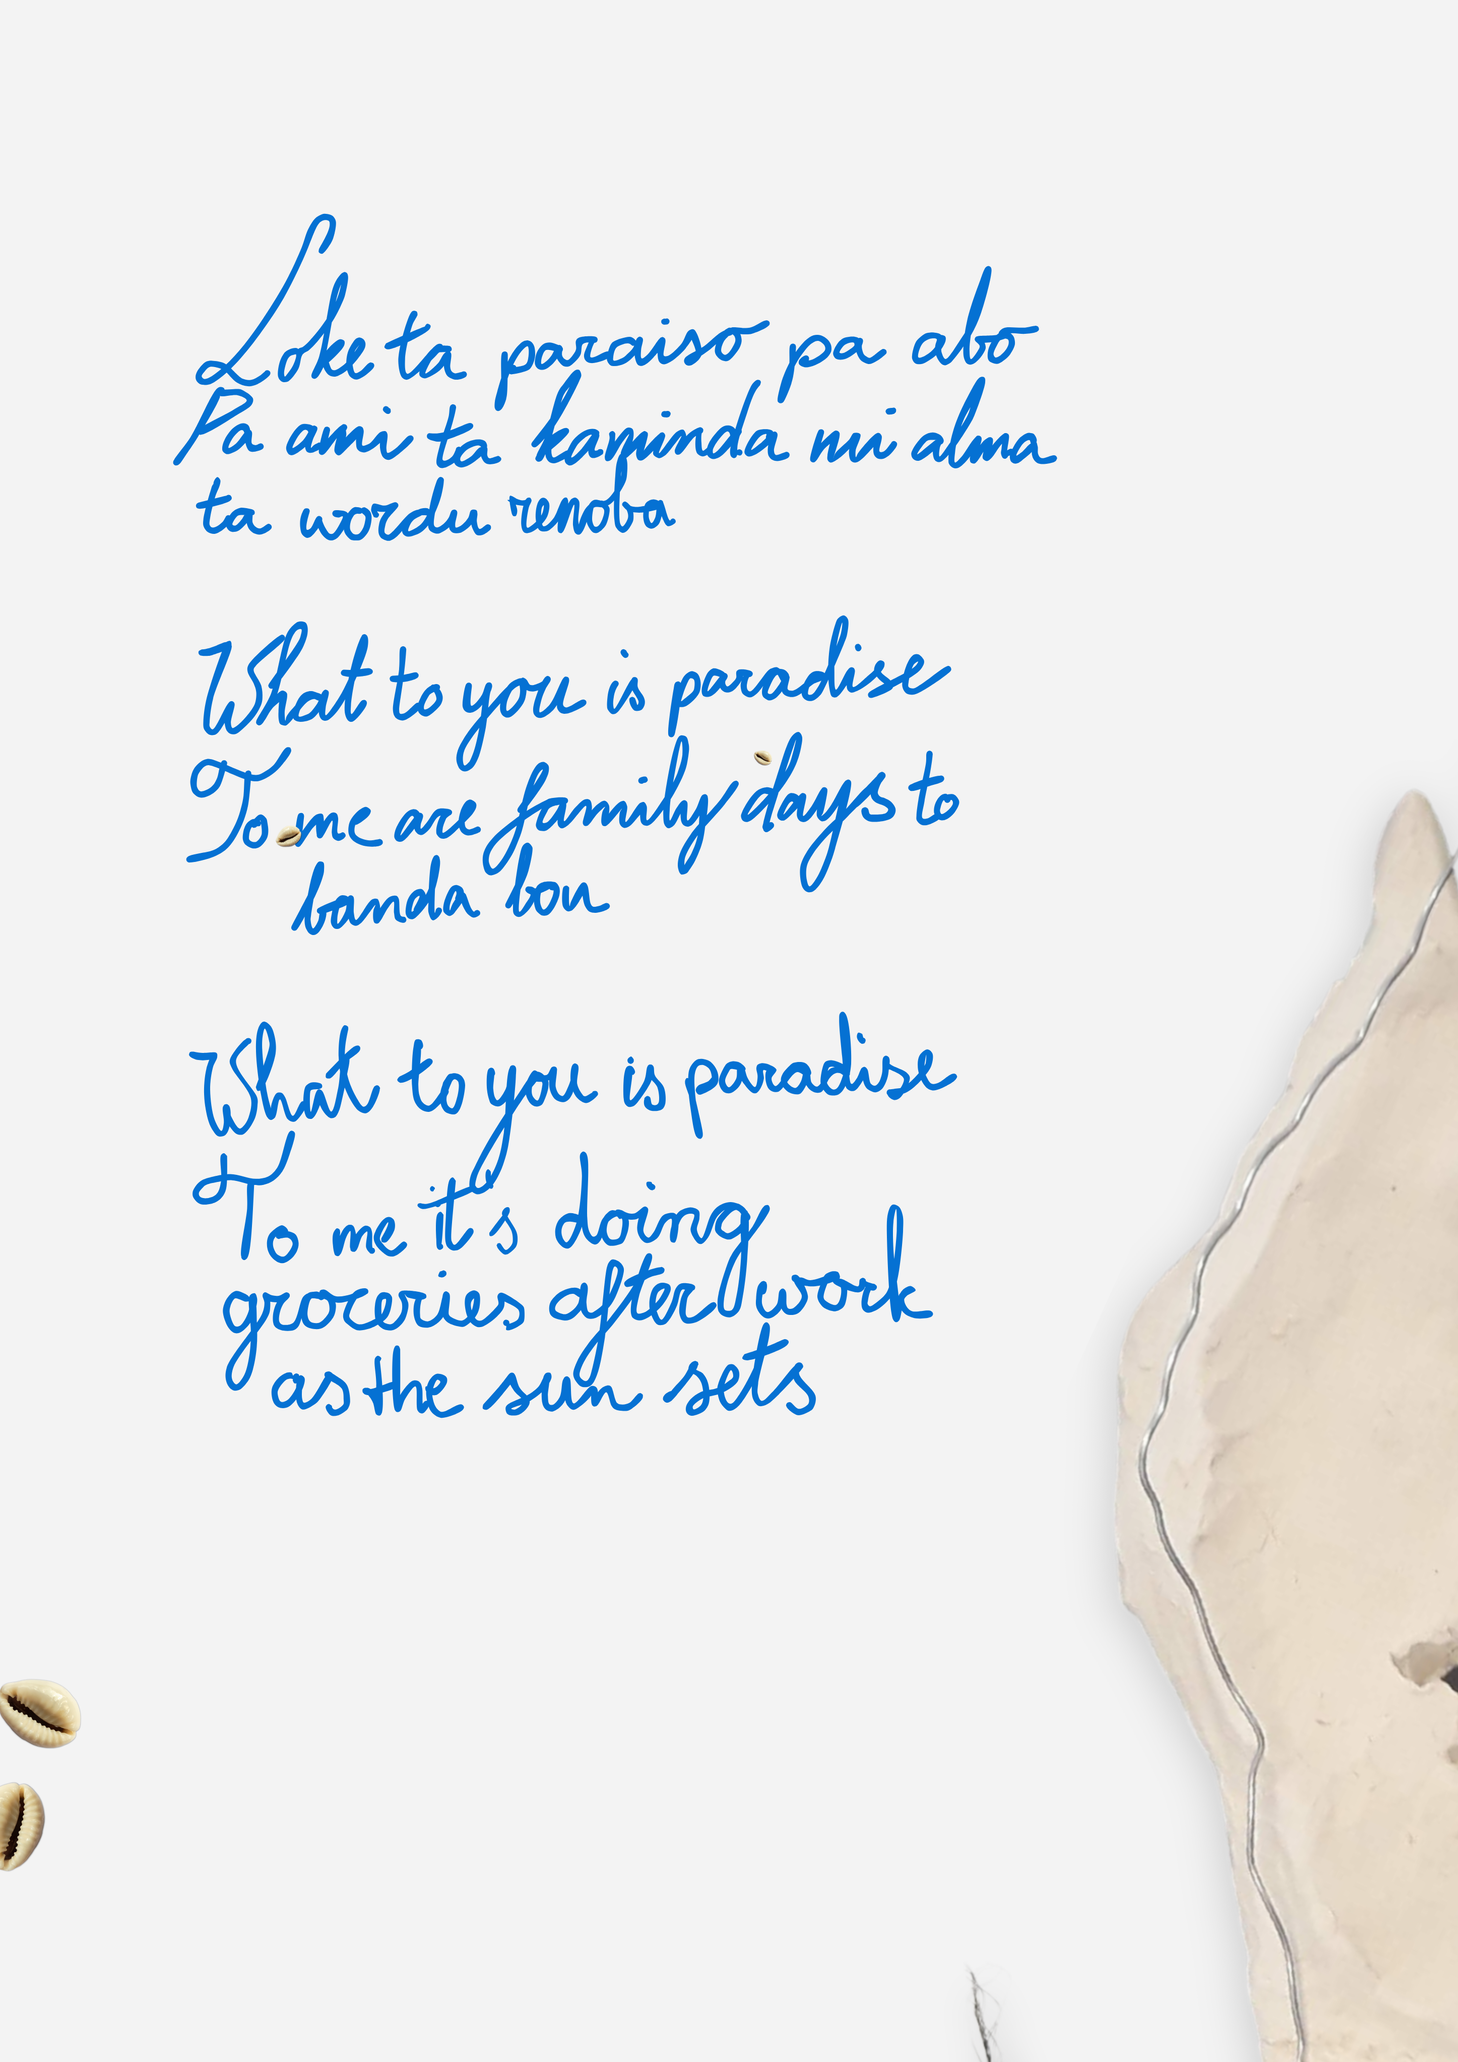 Loke ta paraiso pa abo
Pa ami ta kaminda mi alma
ta wordu renoba
What to you is paradise
To me are family days to
banda bou
What to you is paradise
To me it's doing
groceries after work
as the sun sets